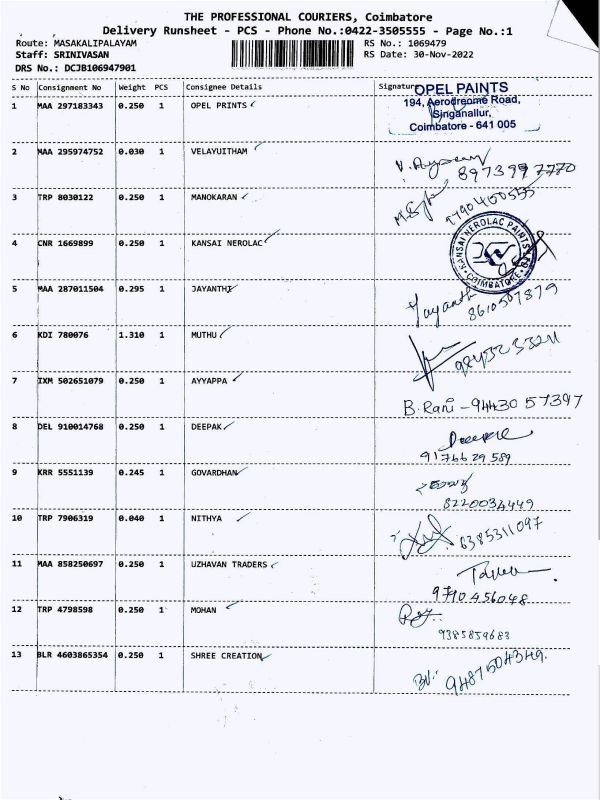 THE PROFESSIONAL COURIERS, Coimbatore
Delivery Runsheet - PCS - Phone No.:0422-3505555 - Page No.:1
Route: MASAKALIPALAYAM
RS No.: 1069479
Staff: SRINIVASAN
RS Date: 30-Nov-2022
DRS No.: DCJB106947901
S No Consignment No Weight PCS Consignee Details Signature
1 MAA 297183343 0.250 1 OPEL PRINTS
OPEL PAINTS
194, Aerodreome Road,
Singanallur,
Coimbatore - 641 005
2 MAA 295974752 0.030 1 VELAYUITHAM
8973997770
3 TRP 8030122 0.250 1 MANOKARAN
9790400555
4 CNR 1669899 0.250 1 KANSAI NEROLAC
KANSAI NEROLAC PAINTS
COIMBATORE
5 MAA 287011504 0.295 1 JAYANTHI
Jayanthi
8610567879
6 KDI 780076 1.310 1 MUTHU
9843233211
7 IXM 502651079 0.250 1 AYYAPPA
B. Rani - 94430 57397
8 DEL 910014768 0.250 1 DEEPAK
Deepak
9176629589
9 KRR 5551139 0.245 1 GOVARDHAN
8220034449
10 TRP 7906319 0.040 1 NITHYA
6385311097
11 MAA 858250697 0.250 1 UZHAVAN TRADERS
9790456048
12 TRP 4798598 0.250 1 MOHAN
9385859683
13 BLR 4603865354 0.250 1 SHREE CREATION
9487504349.